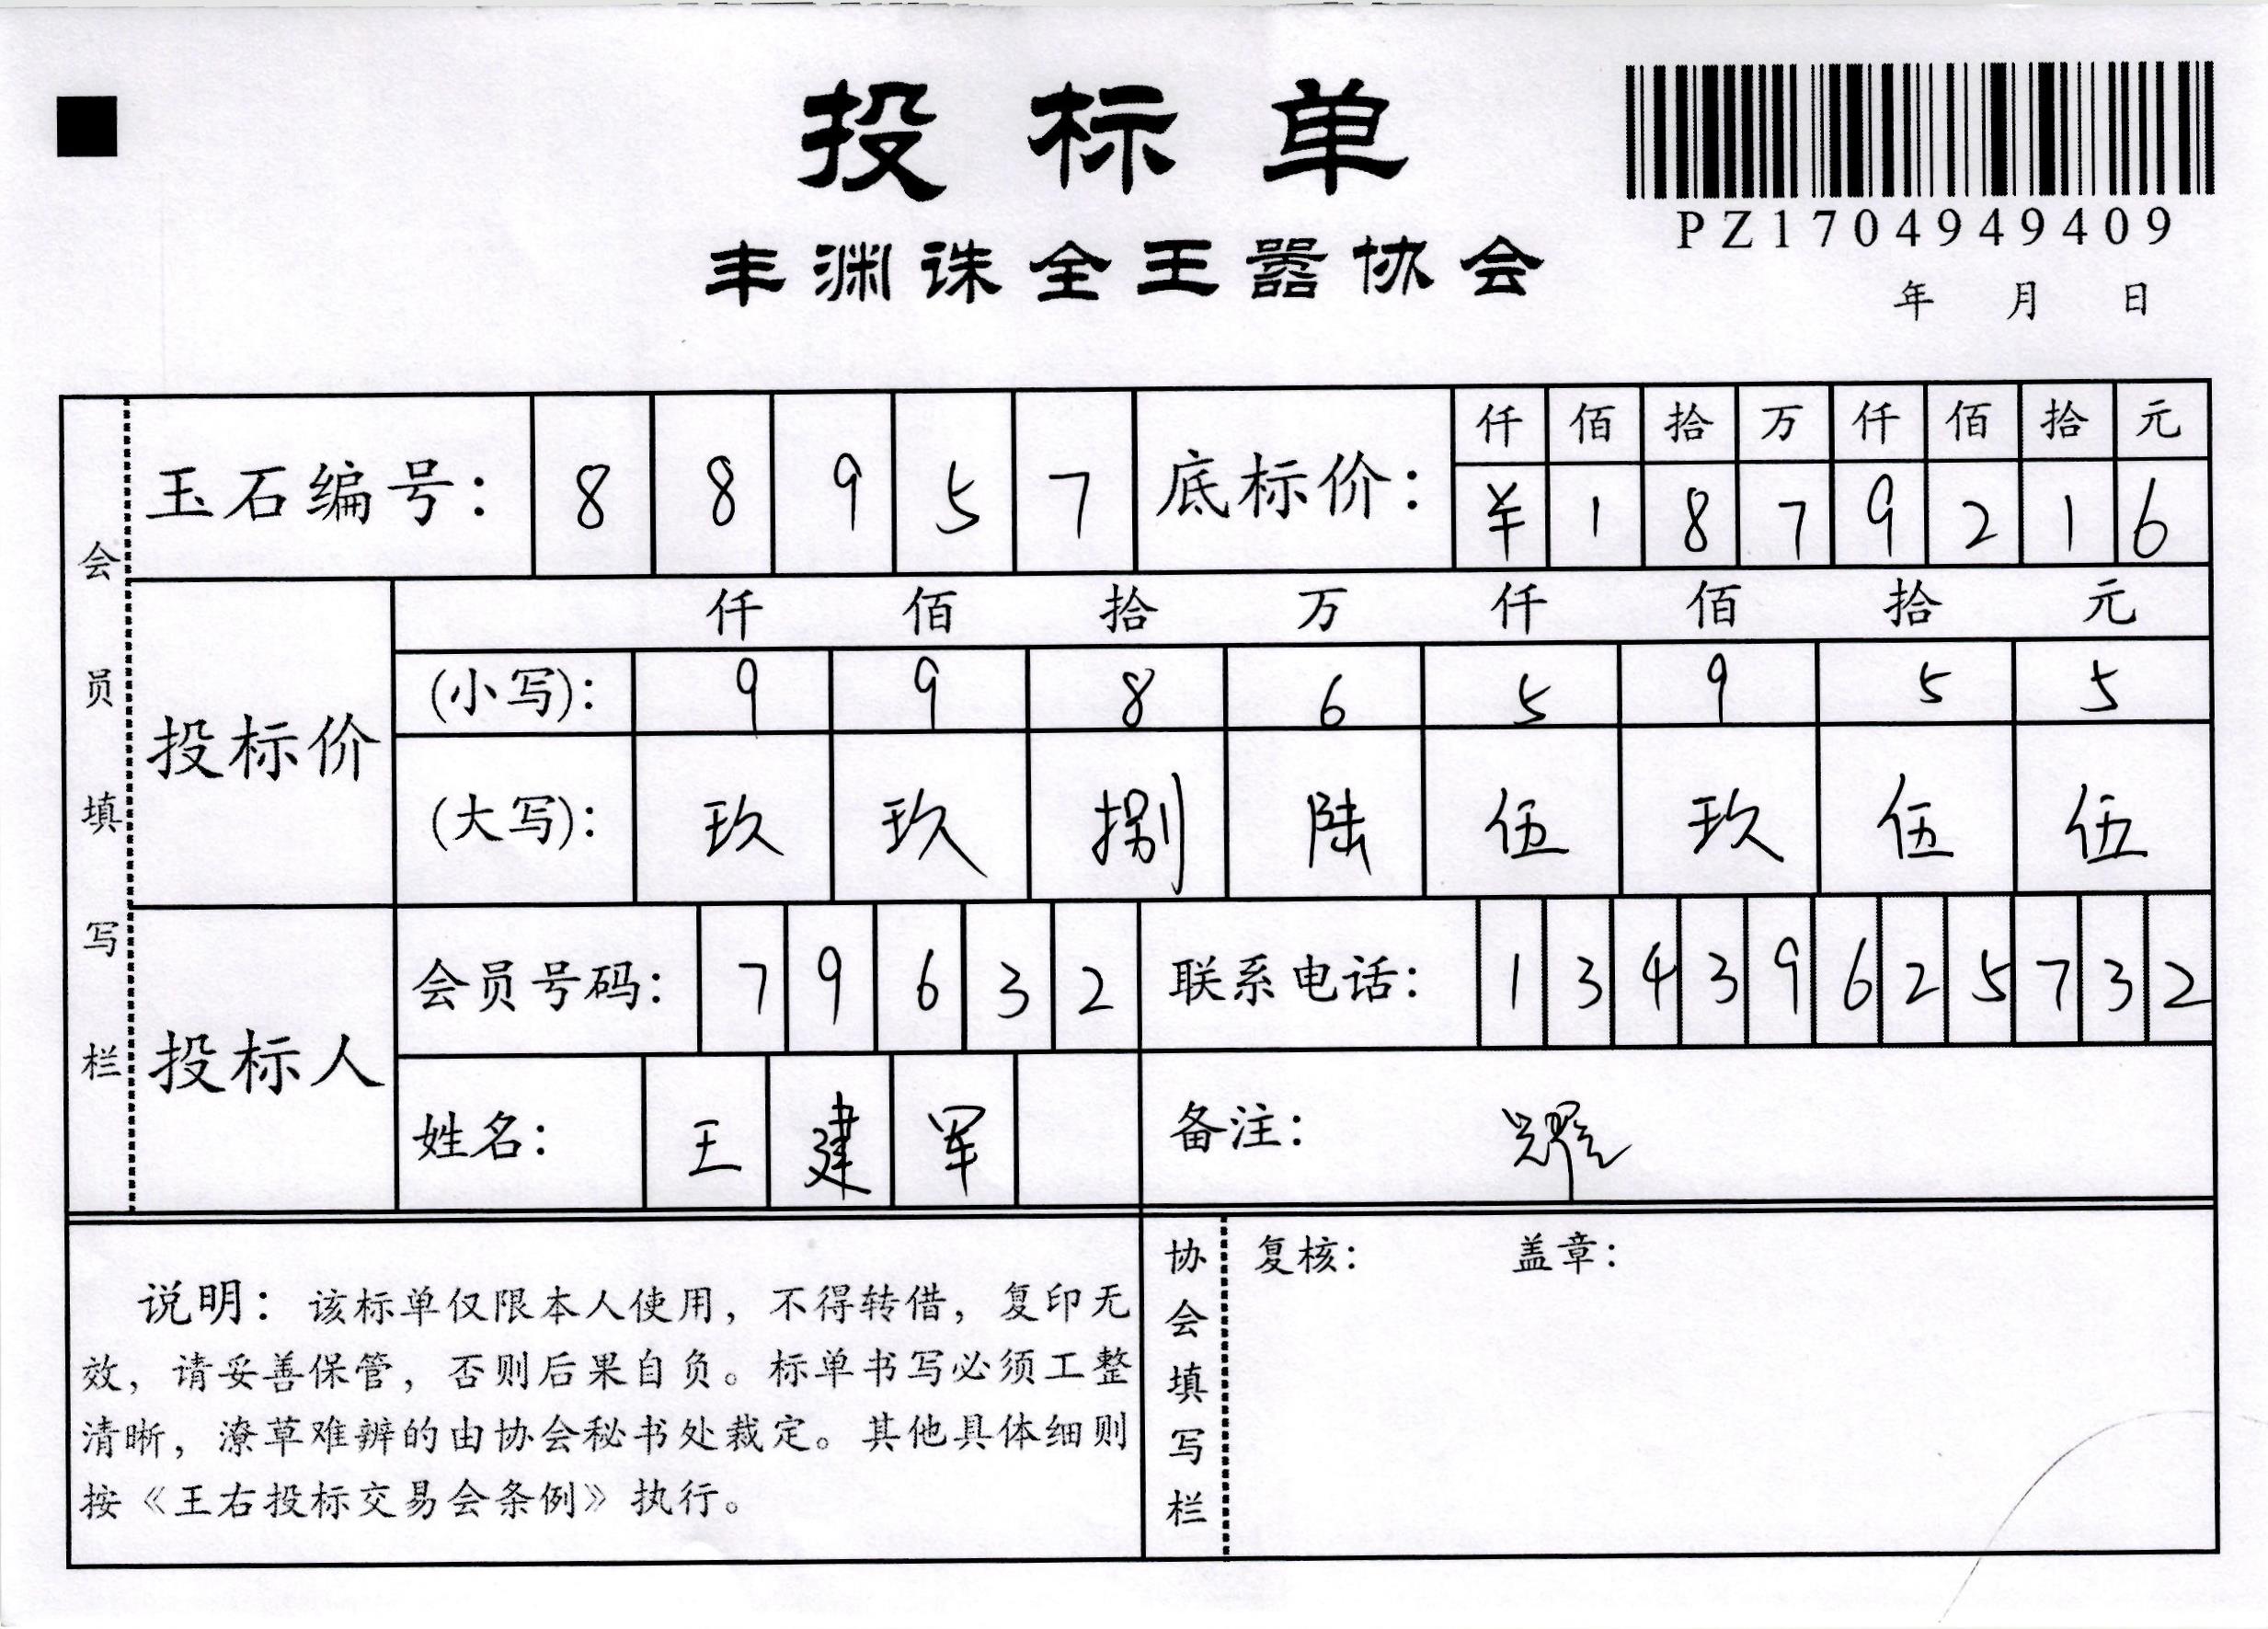 投标单
丰渊诛全王嚣协会
PZ1704949409
年 月 日
会员填写栏
玉石编号： 8 8 9 5 7
底标价： 仟 佰 拾 万 仟 佰 拾 元
¥ 1 8 7 9 2 1 6
投标价
仟 佰 拾 万 仟 佰 拾 元
(小写)： 9 9 8 6 5 9 5 5
(大写)： 玖 玖 捌 陆 伍 玖 伍 伍
投标人
会员号码： 7 9 6 3 2
联系电话： 1 3 4 3 9 6 2 5 7 3 2
姓名： 王 建 军
备注： 耀
说明：该标单仅限本人使用，不得转借，复印无
效，请妥善保管，否则后果自负。标单书写必须工整
清晰，潦草难辨的由协会秘书处裁定。其他具体细则
按《王右投标交易会条例》执行。
协会填写栏
复核： 盖章：